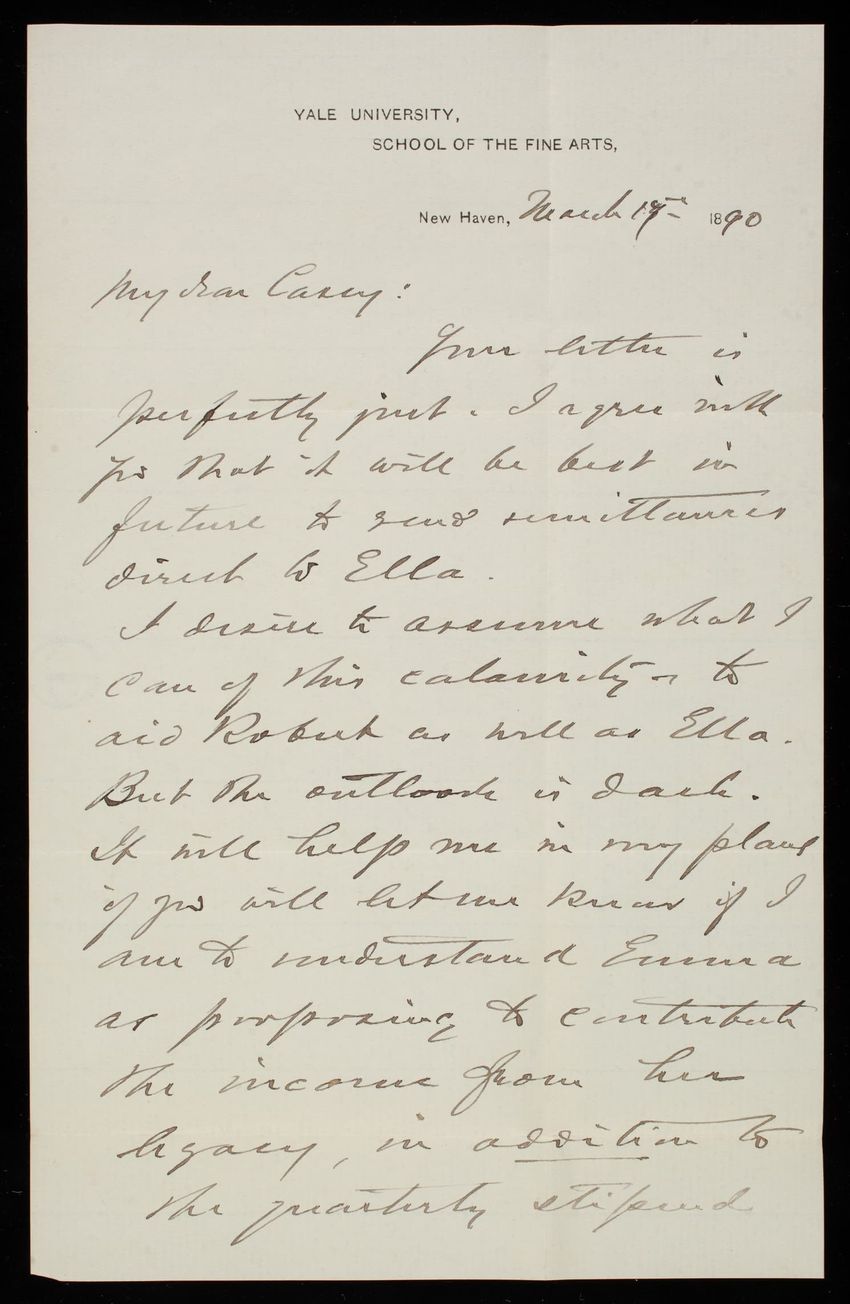 YALE UNIVERSITY,
SCHOOL OF THE FINE ARTS,
New Haven, March 1890
My dear Casey:
Your letter is
perfectly just. I agree with
you that it will be best in
future to send remittances
direct to Ella.
I desire to assume what I
can of this calamity & to
aid Robert as well as Ella.
But the outlook is dark.
It will help me in my plans
if you will let me know if I
am to understand Emma
as proposing to contribute
the income from her
legacy, in addition to
the quarterly stipend